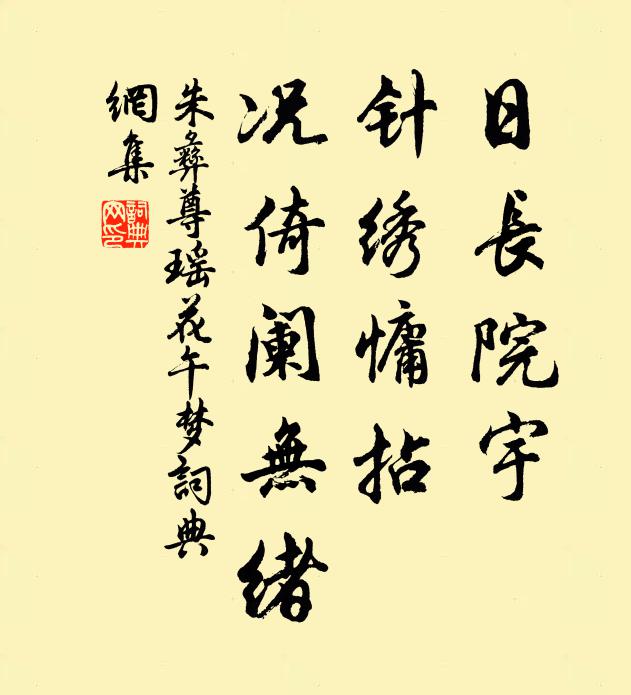 日長院宇
针绣慵拈
况倚阑無绪
朱彝尊瑶花午梦詞典
網集
詞典
网印